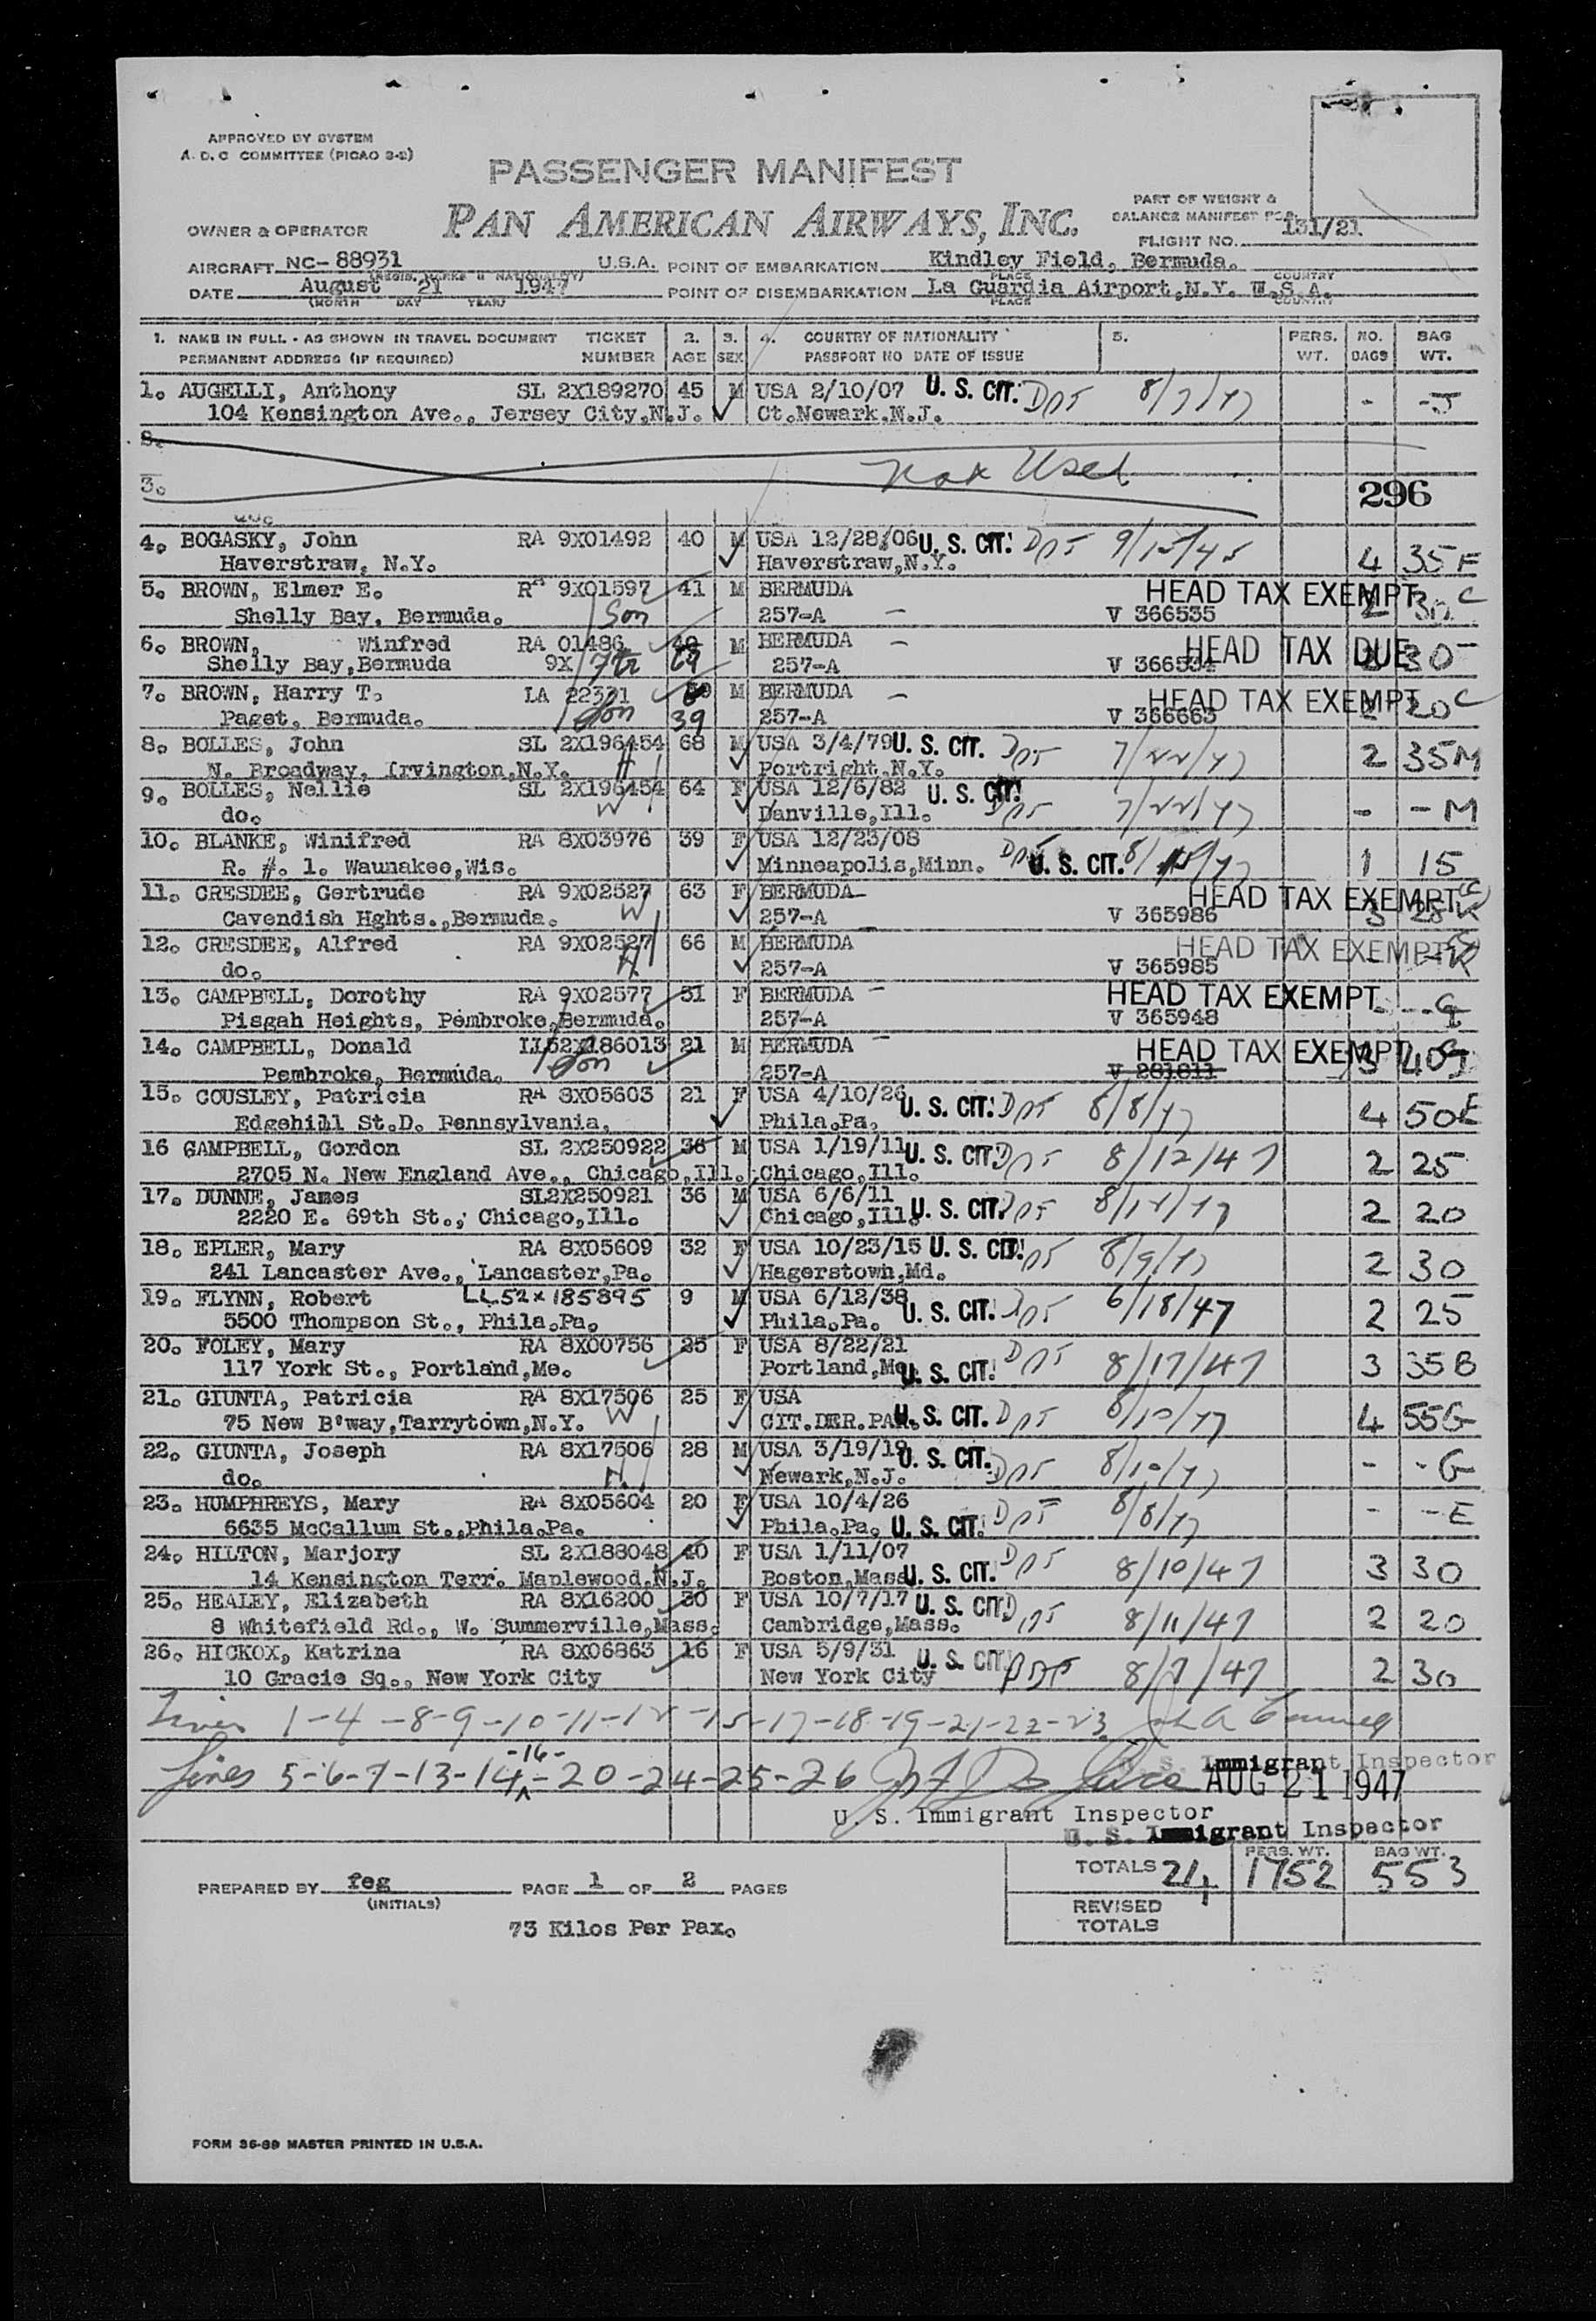 APPROVED BY SYSTEM
A. D. C COMMITTEE (PICAO 3-2)
PASSENGER MANIFEST
PAN AMERICAN AIRWAYS, INC.
PART OF WEIGHT &
BALANCE MANIFEST FOR
OWNER & OPERATOR
FLIGHT NO. 131/21
AIRCRAFT NC-88931 U.S.A. POINT OF EMBARKATION Kindley Field, Bermuda.
DATE August 21 1947 POINT OF DISEMBARKATION La Guardia Airport,N.Y. U.S.A.
(MONTH DAY YEAR) PLACE COUNTRY
1. NAME IN FULL - AS SHOWN IN TRAVEL DOCUMENT TICKET 2. 3. 4. COUNTRY OF NATIONALITY 5. PERS. NO. BAG
PERMANENT ADDRESS (IF REQUIRED) NUMBER AGE SEX PASSPORT NO DATE OF ISSUE WT. BAGS WT.
1. AUGELLI, Anthony SL 2X189270 45 M USA 2/10/07 U. S. CIT. 8/7/47 - -J
104 Kensington Ave., Jersey City,N.J. Ct.Newark.N.J.
2.
Not Used
3. 296
4. BOGASKY, John RA 9X01492 40 M USA 12/28/06 U. S. CIT. 9/15/45
Haverstraw, N.Y. Haverstraw,N.Y. 4 35 F
5. BROWN, Elmer E. RA 9X01597 41 M BERMUDA — HEAD TAX EXEMPT C
Shelly Bay, Bermuda. Son 257-A V 366535 2
6. BROWN, Winfred RA 01486 M BERMUDA — HEAD TAX DUE 30
Shelly Bay,Bermuda 9X 257-A V 366534
7. BROWN, Harry T. LA 22331 M BERMUDA — HEAD TAX EXEMPT 20 C
Paget, Bermuda. Son 39 257-A V 366663
8. BOLLES, John SL 2X196454 68 M USA 3/4/79 U. S. CIT. 7/22/47 2 35M
N. Broadway, Irvington,N.Y. H Portright,N.Y.
9. BOLLES, Nellie SL 2X196454 64 F USA 12/6/82 U. S. CIT.
do. W Danville,Ill. 7/22/47 - - M
10. BLANKE, Winifred RA 8X03976 39 F USA 12/23/08
R. #. 1. Waunakee,Wis. Minneapolis,Minn. U. S. CIT. 1 15
11. CRESDEE, Gertrude RA 9X02527 63 F BERMUDA— HEAD TAX EXEMPT
Cavendish Hghts.,Bermuda. W 257-A V 365986
12. CRESDEE, Alfred RA 9X02527 66 M BERMUDA HEAD TAX EXEMPT
do. H 257-A V 365985
13. CAMPBELL, Dorothy RA 9X02577 31 F BERMUDA — HEAD TAX EXEMPT
Pisgah Heights, Pembroke,Bermuda. 257-A V 365948
14. CAMPBELL, Donald LL52X186013 21 M BERMUDA — HEAD TAX EXEMPT 3 40
Pembroke, Bermuda. Son 257-A V 281811
15. COUSLEY, Patricia RA 8X05603 21 F USA 4/10/26 U. S. CIT. 8/8/47
Edgehill St.D. Pennsylvania. Phila.Pa. 4 50E
16 GAMPBELL, Gordon SL 2X250922 36 M USA 1/19/11 U. S. CIT. 8/12/47 2 25
2705 N. New England Ave., Chicago,Ill. Chicago,Ill.
17. DUNNE, James SL2X250921 36 M USA 6/6/11
2220 E. 69th St., Chicago,Ill. Chicago,Ill. U. S. CIT. 8/12/47 2 20
18. EPLER, Mary RA 8X05609 32 F USA 10/23/15 U. S. CIT. 8/9/47
241 Lancaster Ave., Lancaster,Pa. Hagerstown,Md. 2 30
19. FLYNN, Robert LL52x185895 9 M USA 6/12/38 U. S. CIT. 6/18/47
5500 Thompson St., Phila.Pa. Phila.Pa. 2 25
20. FOLEY, Mary RA 8X00756 25 F USA 8/22/21
117 York St., Portland,Me. Portland,Me. U. S. CIT. 8/17/47 3 35B
21. GIUNTA, Patricia RA 8X17506 25 F USA
75 New B'way,Tarrytown,N.Y. W CIT.DER.PAR. U. S. CIT. 8/10/47 4 55G
22. GIUNTA, Joseph RA 8X17506 28 M USA 3/19/19 U. S. CIT.
do. H. Newark,N.J. 8/10/47 - - G
23. HUMPHREYS, Mary RA 8X05604 20 F USA 10/4/26 8/8/47
6635 McCallum St.,Phila.Pa. Phila.Pa. U. S. CIT. - - E
24. HILTON, Marjory SL 2X188048 40 F USA 1/11/07
14 Kensington Terr. Maplewood,N.J. Boston,Mass U. S. CIT. 8/10/47 3 30
25. HEALEY, Elizabeth RA 8X16200 30 F USA 10/7/17 U. S. CIT.
8 Whitefield Rd., W. Summerville,Mass. Cambridge,Mass. 8/11/47 2 20
26. HICKOX, Katrina RA 8X06863 16 F USA 5/9/31 U. S. CIT.
10 Gracie Sq., New York City New York City 8/7/47 2 30
Lines 1-4-8-9-10-11-12-15-17-18-19-21-22-23.
-16-
Lines 5-6-7-13-14-20-24-25-26
U. S. Immigrant Inspector
AUG 21 1947
U. S. Immigrant Inspector
U. S. Immigrant Inspector
PREPARED BY feg PAGE 1 OF 2 PAGES
(INITIALS)
TOTALS 24 PERS. WT. 1752 BAG WT. 553
REVISED
TOTALS
73 Kilos Per Pax.
FORM 36-89 MASTER PRINTED IN U.S.A.